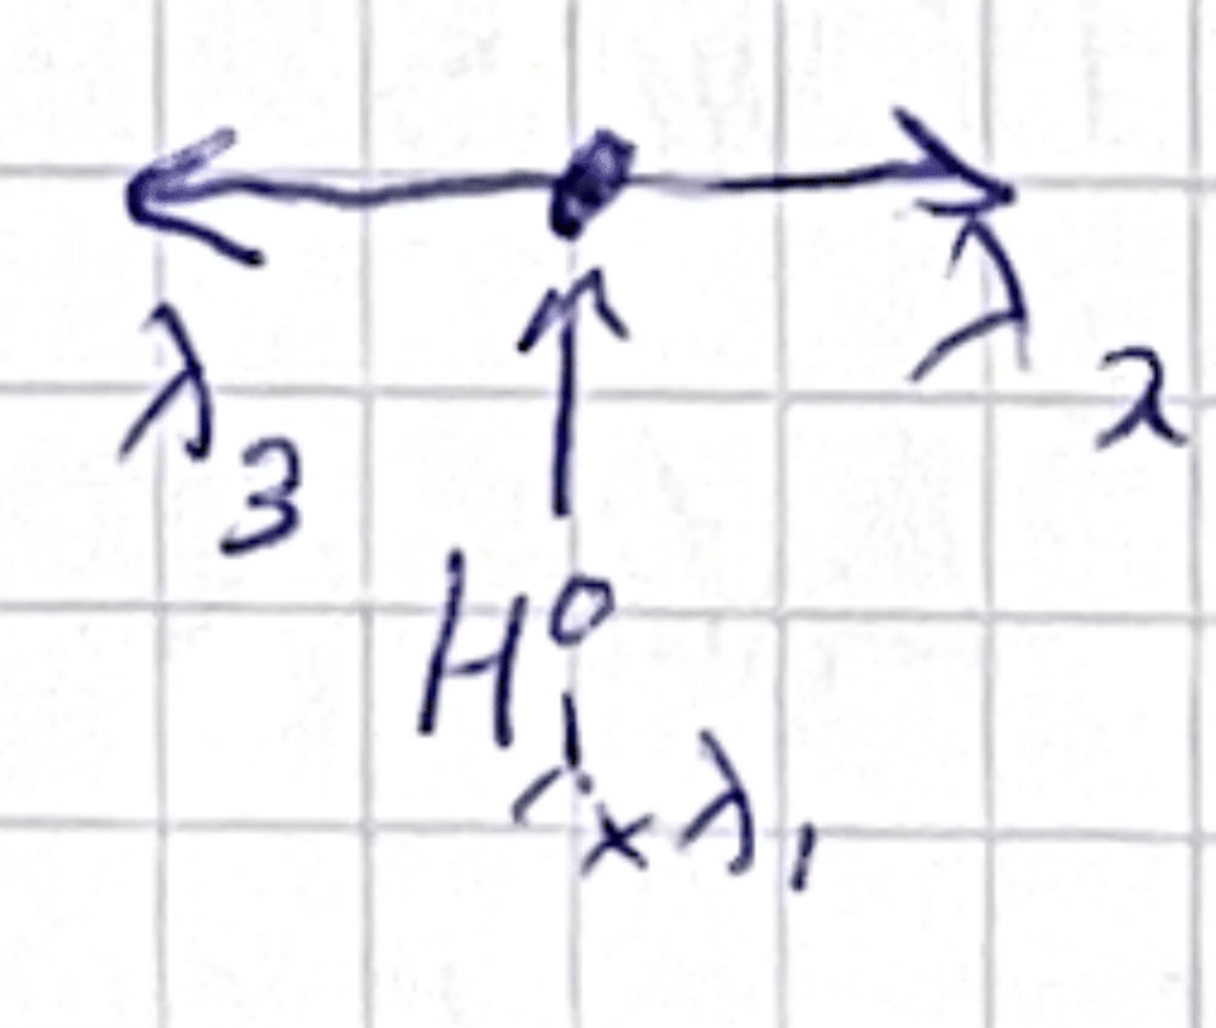 λ₃
λ₂
H⁰
x λ₁